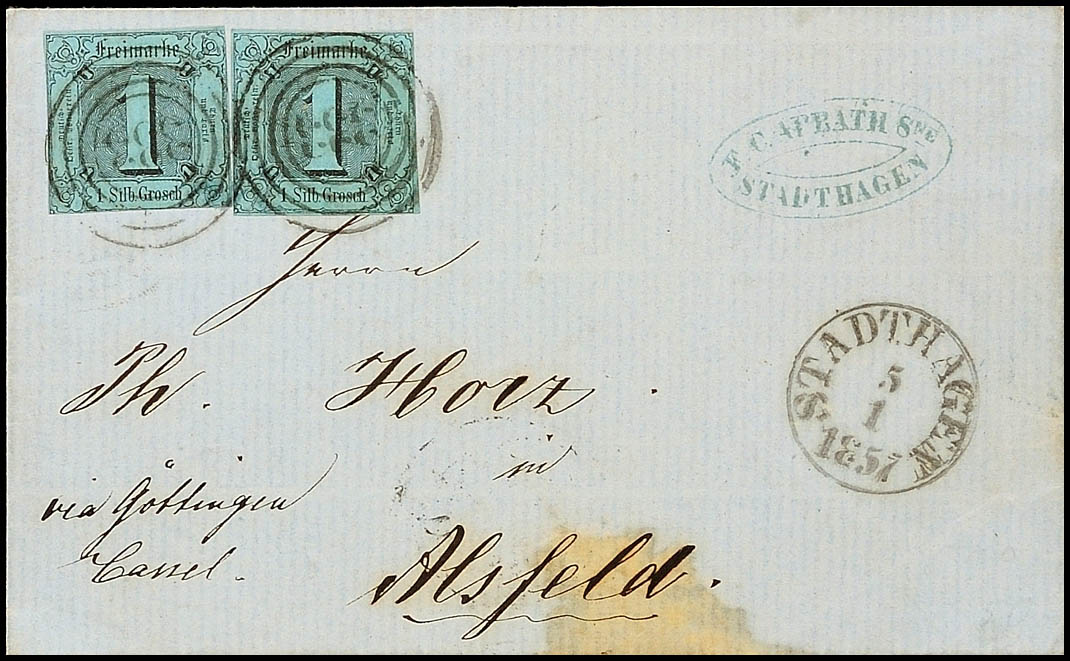 Freimarke
1
1 Silb. Grosch
Freimarke
1
1 Silb. Grosch
F. C. APRATH SNE
STADTHAGEN
STADTHAGEN
5
1
1857
Herrn
Th. Horz.
in
via Göttingen
Cassel.
Alsfeld.